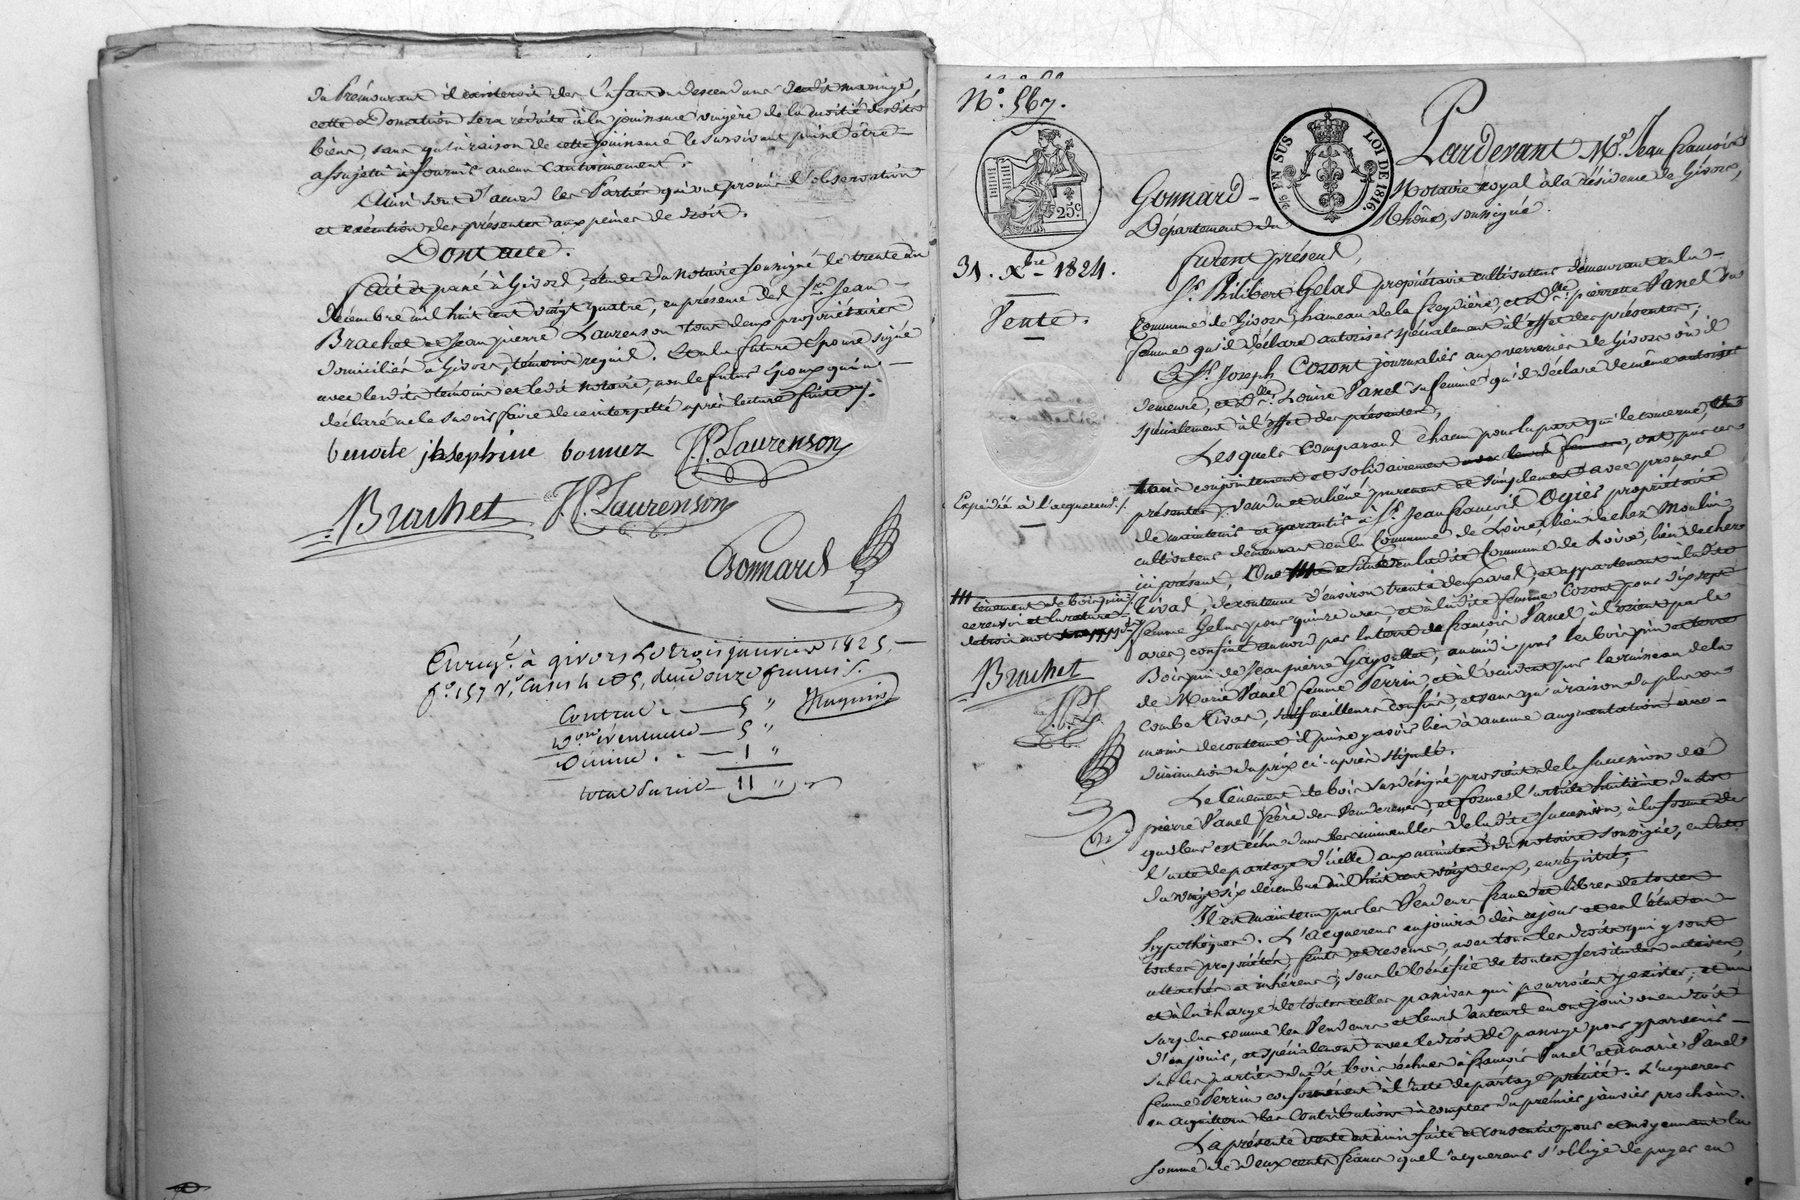 du prémourant il existeroit des Enfans ou descendans dudit mariage,
cette Donation sera réduite à la jouissance viagère de la moitié desdits
biens, sans qu'à raison de cette jouissance le survivant puisse être
assujetti à fournir aucun cautionnement.
Ainsi sont d'accord les Parties qui ont promis l'observation
et exécution des présentes aux peines de droit.
Dont acte.
fait et passé à Givors, étude du notaire soussigné le trente un
décembre mil huit cent vingt quatre, en présence des Srs Jean
Brachet et Jean pierre Laurenson tous deux propriétaires
domiciliés à Givors, témoins requis. Et la future Epouse signé
avec lesdits témoins et ledit notaire, non le futur Epoux qui a
déclaré ne le savoir faire de ce interpellé après lecture faite /.
benoite jhosephine bonnez JP. Laurenson
Brachet JP. Laurenson
Gonnard
Enregé. à givors le trois janvier 1825,
fo. 157 Vo. Cases 4 et 5, deux francs
Contrat . — 5 "
5 "
Dixième . — 1 "
total Suivt — 11 "
No. 567.
25c
EN SUS
LOI DE 1816.
31. Xbre 1824.
Vente.
Expédiée à l'acquereur /.
tènement de bois pin /.
Brachet
J.P.L.
Pardevant Me. Jean françois
Gonnard - Notaire royal à la résidence de Givors,
Département du Rhône, soussigné.
furent présens,
Sr. Philibert Gelas propriétaire cultivateur demeurant en la
Commune de Givors, hameau de la freydière, et Dlle. pierrette Panel sa
femme qu'il déclare autoriser spécialement à l'effet des présentes,
Et Sr. Joseph Cozont journalier aux verreries de Givors où il
demeure, et Dlle. Louise Panel sa femme qu'il déclare de même autoriser
spécialement à l'effet des présentes,
Lesquels Comparans chacun pour la part qui le concerne,
mais conjointement et solidairement ont, par ces
présentes, vendu et aliéné, purement et simplement avec promesse
de maintenir et garantir à Sr. Jean françois Ogier propriétaire
cultivateur demeurant en la Commune de Loire, lieu de chez Moulin,
ici présent, Un situé en ladite Commune de Loire, lieu de chez
Rivas, de contenue d'environ trente deux ares, et appartenant à ladite
femme Gelas pour quinze ares, et à ladite femme Cozont pour dix sept
ares, confiné au nord par la terre de françois Panel, à l'orient par le
Bois pin de Jean pierre Gayollet, au midi par le bois pin et terre
de Marie Panel femme Perrin et à l'occident par le ruisseau de la
combe Rivas, sauf meilleurs confins, et sans qu'à raison du plus ou
moins de contenue il puisse y avoir lieu à aucune augmentation ou
diminution du prix ci-après stipulé.
Le tènement de bois sus désigné provient de la succession de
pierre Panel père des Venderesses, et forme l'article huitième du lot
qui leur est échu dans les immeubles de ladite succession, à la forme de
l'acte de partage d'icelle, aux minutes du notaire soussigné, en date
du vingt six décembre mil huit cent vingt deux, enregistré;
Il est maintenu par les Vendeurs franc et libre de toutes
hypothèques. L'acquereur en jouira dès ce jour et en l'état en
toutes propriétés, fruits et revenus, avec tous les droits qui y sont
attachés et inhérens; sous le bénéfice de toutes servitudes actives
et à la charge de toutes celles passives qui pourroient y exister, et au
surplus comme les Vendeurs et leurs auteurs en ont joui ou eu droit
d'en jouir, et spécialement avec le droit de passage pour y parvenir
sur les parties dudit bois échues à françois Panel et à marie Panel
femme Perrin conformément à l'acte de partage précité. L'acquereur
en acquittera les Contributions à compter du premier janvier prochain.
La présente vente est ainsi faite et consentie pour et moyennant la
somme de deux cents francs que l'acquereur s'oblige de payer en